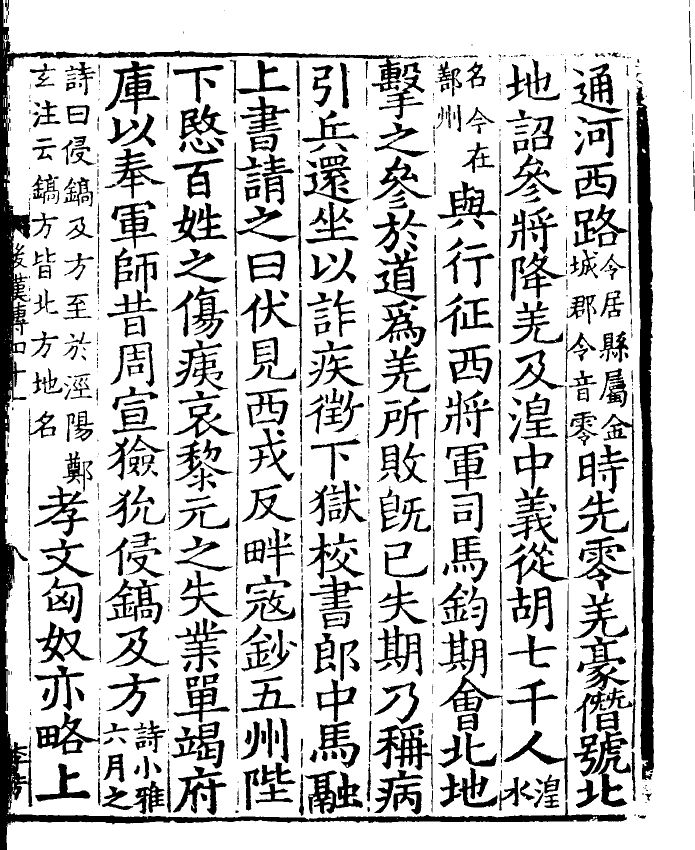 通河西路令居縣屬金城郡令音零時先零羌豪僭號北
地詔參將降羌及湟中義從胡七千人湟水
名今在鄯州與行征西將軍司馬鈞期會北地
擊之參於道爲羌所敗旣已失期乃稱病
引兵還坐以詐疾徵下獄校書郎中馬融
上書請之曰伏見西戎反畔寇鈔五州陛
下愍百姓之傷痍哀黎元之失業單竭府
庫以奉軍師昔周宣獫狁侵鎬及方詩小雅六月之
詩曰侵鎬及方至於涇陽鄭玄注云鎬方皆北方地名孝文匈奴亦略上
後漢傳四十一
八